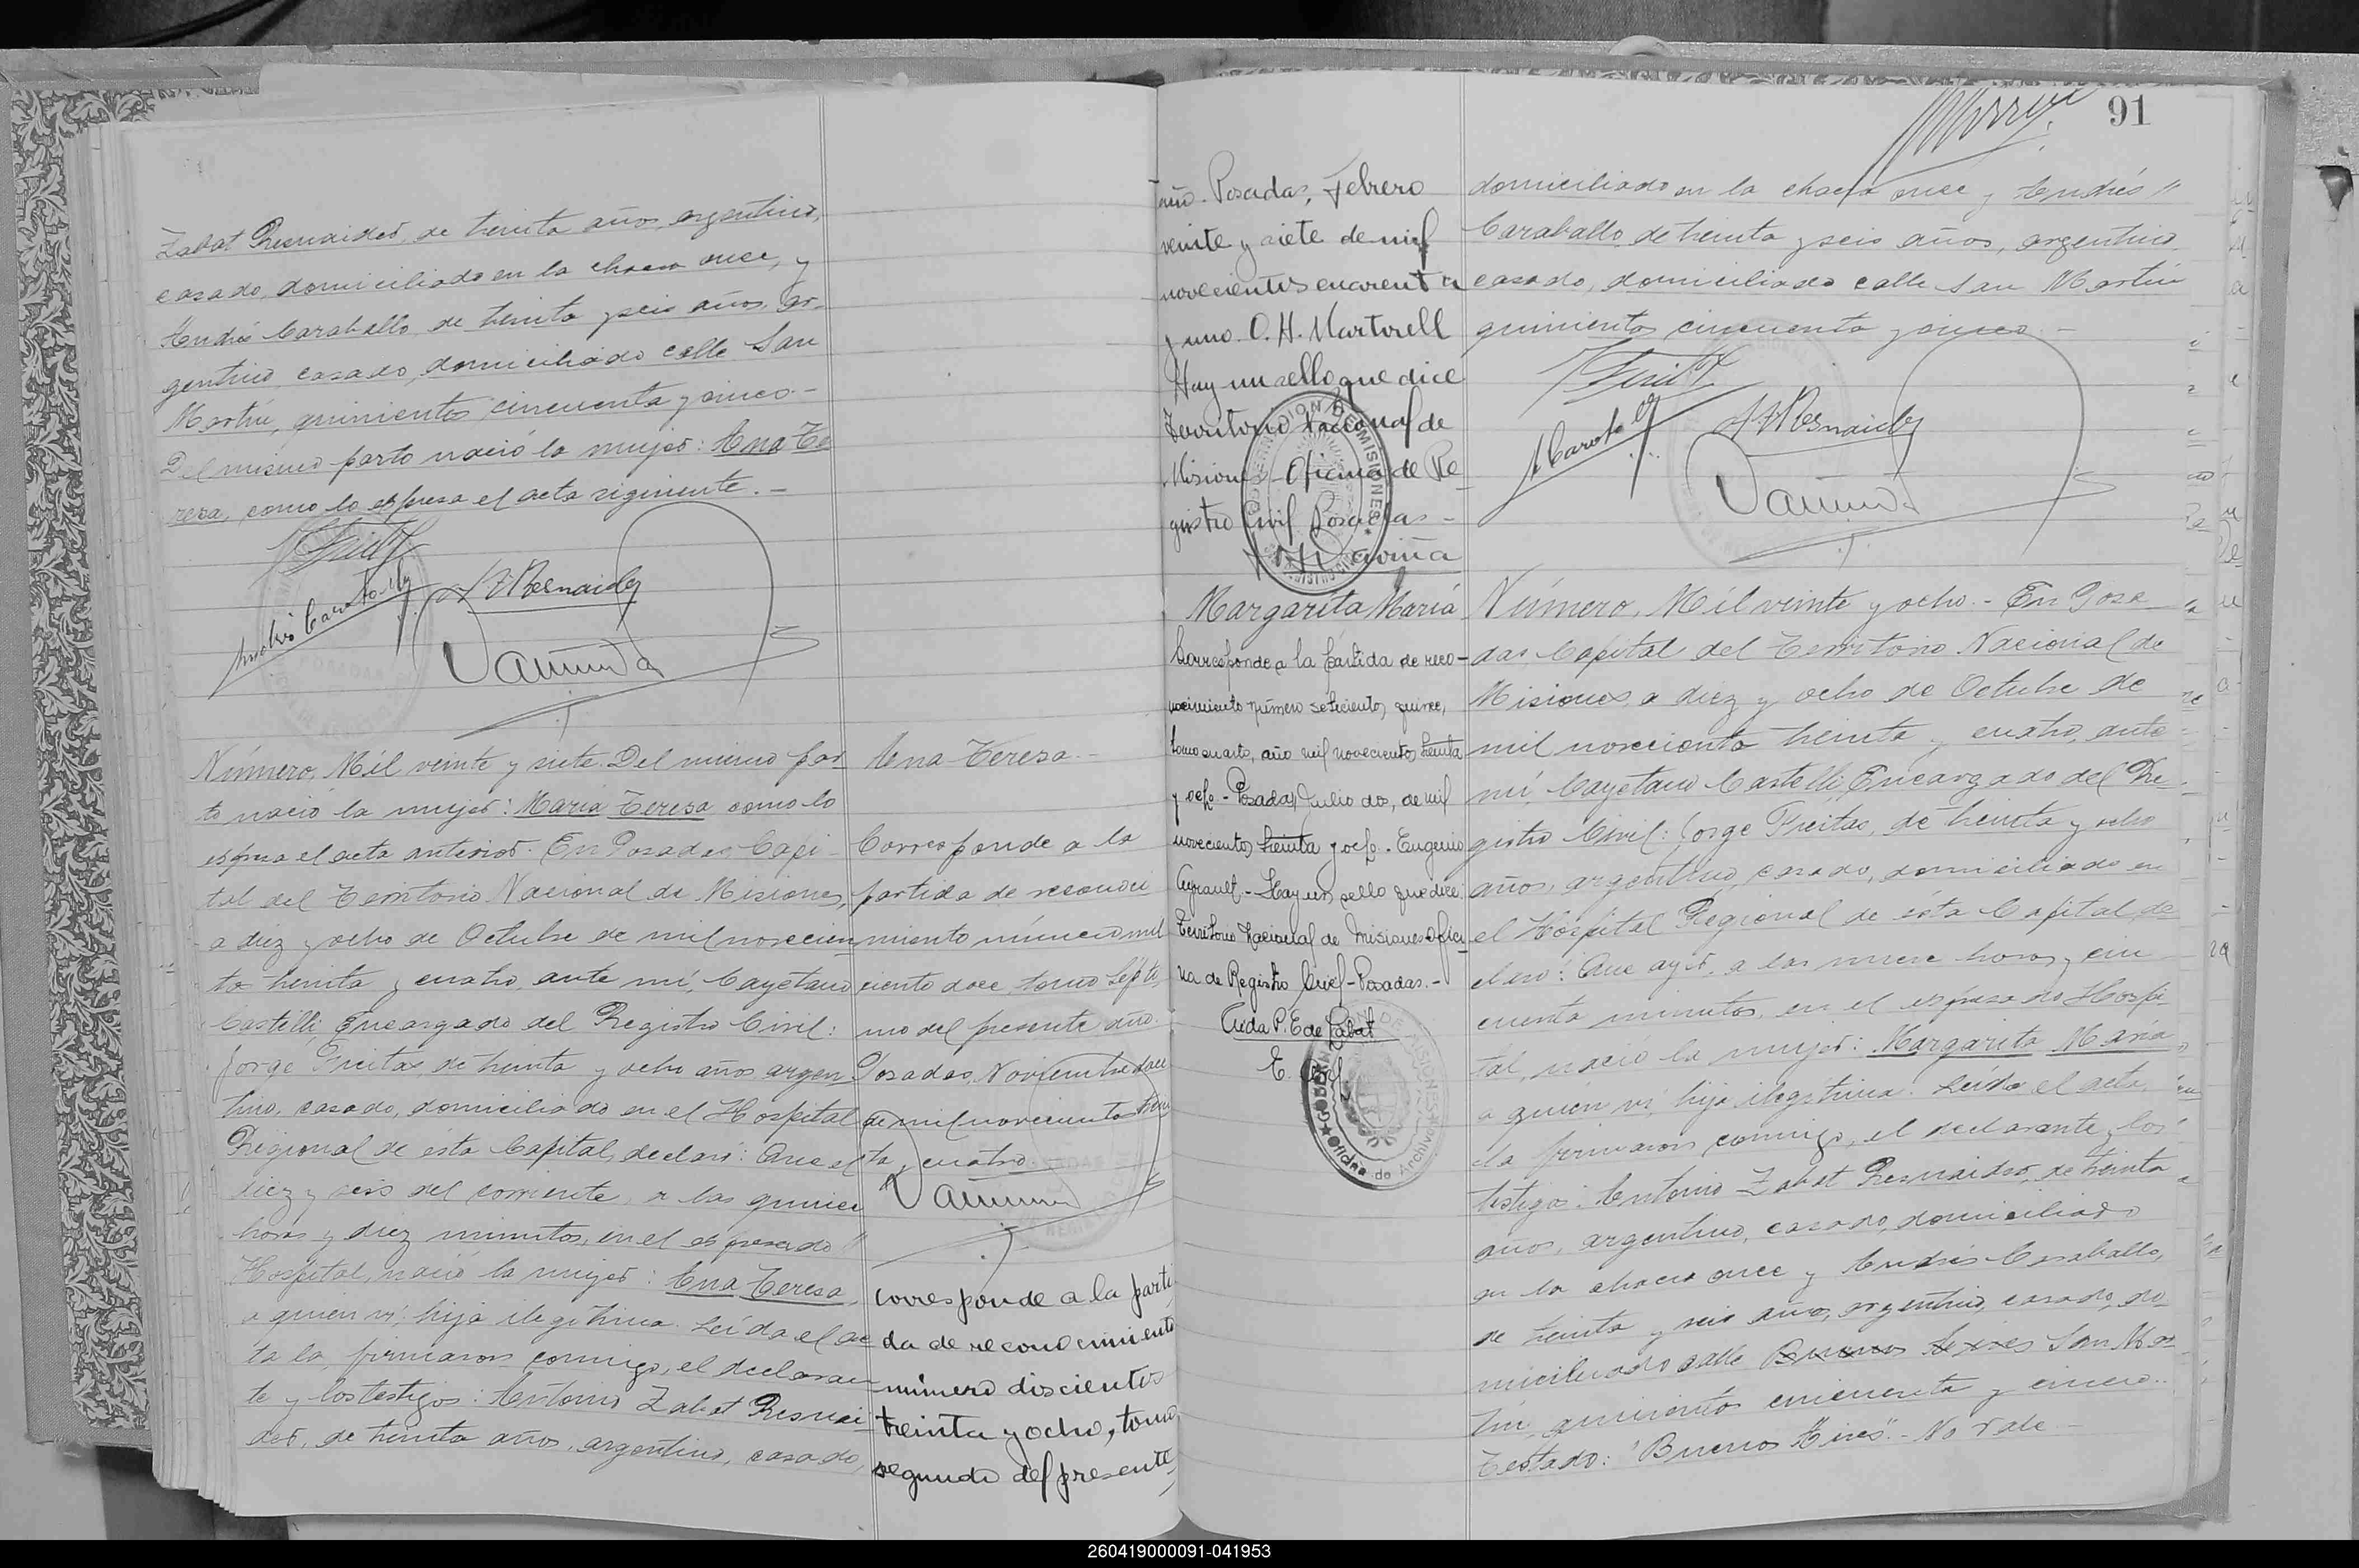 Zabat Resnaider, de treinta años, argentino,
casado, domiciliado en la chacra once, y
Andrés Caraballo, de treinta y seis años, ar-
gentino, casado, domiciliado calle San
Martín, quinientos cincuenta y cinco.-
Del mismo parto nació la mujer: Ana Te
resa, como lo espresa el acta siguiente.-
Andrés Caraballo
A Z Resnaider
Número, Mil veinte y siete. Del mismo par
to nació la mujer: María Teresa como lo
espresa el acta anterior. En Posadas, Capi-
tal del Territorio Nacional de Misiones,
a diez y ocho de Octubre de mil novecien
tos treinta y cuatro, ante mí, Cayetano
Castelli, Encargado del Registro Civil:
Jorge Freitas, de treinta y ocho años, argen
tino, casado, domiciliado en el Hospital
Regional de ésta Capital, declaró: Que el
diez y seis del corriente, a las quince
horas y diez minutos, en el espresado "
Hospital, nació la mujer: Ana Teresa,
a quien ví; hija ilegítima. Leída el ac
ta la firmaron conmigo, el declaran-
te y los testigos: Antonio Zabat Resnai-
der, de treinta años, argentino, casado,
Ana Teresa.-
Corresponde a la
partida de reconoci
miento número mil
ciento doce, tomo sépti
mo del presente año.
Posadas, Noviembre doce
de mil novecientos trein
ta y cuatro.
corresponde a la parti
da de reconocimiento
número discientos
treinta y ocho, tomo
segundo del presente
año. Posadas, Febrero
veinte y siete de mil
novecientos cuarenta
y uno. O. H. Martorell
Hay un sello que dice
Territorio Nacional de
Misiones - Oficina de Re
gistro Civil Posadas -
Margarita María
Corresponde a la partida de reco-
nocimiento número setecientos quince,
tomo cuarto, año mil novecientos treinta
y ocho - Posadas, Julio dos, de mil
novecientos treinta y ocho. Eugenio
- Hay un sello que dice:
Territorio Nacional de Misiones Ofici
na de Registro Civil - Posadas.-
Aida P. E de Zabat
91
domiciliado en la chacra once y Andrés "
Caraballo, de treinta y seis años, argentino
casado, domiciliado calle San Martín
quinientos cincuenta y cinco.-
A Caraballo
A Z Resnaider
Número, Mil veinte y ocho.- En Posa
das, Capital del Territorio Nacional de
Misiones, a diez y ocho de Octubre de
mil novecientos treinta y cuatro, ante
mí, Cayetano Castelli, Encargado del Re-
gistro Civil: Jorge Freitas, de treinta y ocho
años, argentino, casado, domiciliado en
el Hospital Regional de ésta Capital, de
claró: Que ayer, a las nueve horas y cin
cuenta minutos, en el espresado Hospi
tal, nació la mujer: Margarita María
a quien ví, hija ilegítima. Leída el acta,
la firmaron conmigo, el declarante y los
testigos: Antonio Zabat Resnaider, de treinta
años, argentino, casado, domiciliado
en la chacra once y Andrés Caraballo,
de treinta y seis años, argentino, casado, do
miciliado calle Buenos Aires San Mar
tín, quinientos cincuenta y cinco.-
Testado: "Buenos Aires".- No vale.-
260419000091-041953